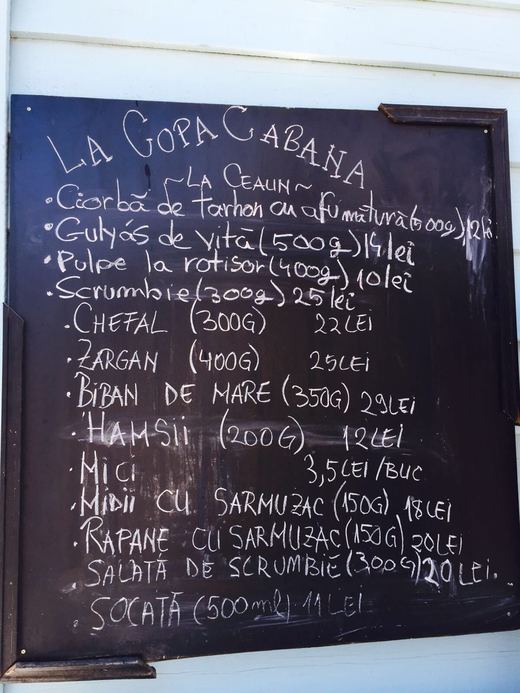 LA COPA CABANA
~LA CEAUN~
• Ciorbă de tarhon cu afumătură (500g) 12 lei
• Gulyás de vită (500g) 14 lei
• Pulpe la rotisor (400g) 10 lei
• Scrumbie (300g) 25 lei
• CHEFAL (300G) 22 LEI
• ZARGAN (400G) 25 LEI
• BIBAN DE MARE (350G) 29 LEI
• HAMSII (200G) 12 LEI
• MICI 3,5 LEI/BUC
• MIDII CU SARMUZAC (150G) 18 LEI
• RAPANE CU SARMUZAC (150G) 20 LEI
• SALATĂ DE SCRUMBIE (300G) 20 LEI.
• SOCATĂ (500ml) 11 LEI